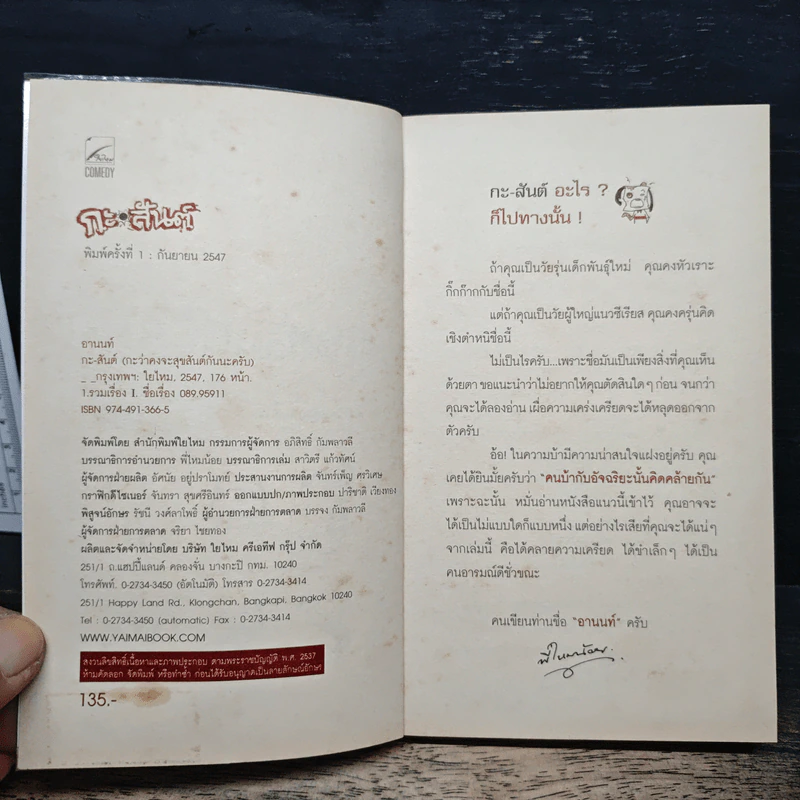 COMEDY
กะ-สันต์
พิมพ์ครั้งที่ 1 : กันยายน 2547
อานนท์
กะ-สันต์ (กะว่าคงจะสุขสันต์กันนะครับ)
_ _กรุงเทพฯ: ใยไหม, 2547, 176 หน้า.
1.รวมเรื่อง I. ชื่อเรื่อง 089.95911
ISBN 974-491-366-5
จัดพิมพ์โดย สำนักพิมพ์ใยไหม กรรมการผู้จัดการ อภิสิทธิ์ กัมพลาวลี
บรรณาธิการอำนวยการ พี่ไหมน้อย บรรณาธิการเล่ม สาวิตรี แก้วทัศน์
ผู้จัดการฝ่ายผลิต อัศนัย อยู่ปราโมทย์ ประสานงานการผลิต จันทร์เพ็ญ ศรวิเศษ
กราฟิกดีไซเนอร์ จันทรา สุขศรีอินทร์ ออกแบบปก/ภาพประกอบ ปาริชาติ เวียงทอง
พิสูจน์อักษร รัชนี วงศ์ลาโพธิ์ ผู้อำนวยการฝ่ายการตลาด บรรจง กัมพลาวลี
ผู้จัดการฝ่ายการตลาด จริยา ไชยทอง
ผลิตและจัดจำหน่ายโดย บริษัท ใยไหม ครีเอทีฟ กรุ๊ป จำกัด
251/1 ถ.แฮปปี้แลนด์ คลองจั่น บางกะปิ กทม. 10240
โทรศัพท์. 0-2734-3450 (อัตโนมัติ) โทรสาร 0-2734-3414
251/1 Happy Land Rd., Klongchan, Bangkapi, Bangkok 10240
Tel : 0-2734-3450 (automatic) Fax : 0-2734-3414
WWW.YAIMAIBOOK.COM
สงวนลิขสิทธิ์เนื้อหาและภาพประกอบ ตามพระราชบัญญัติ พ.ศ. 2537
ห้ามคัดลอก จัดพิมพ์ หรือทำซ้ำ ก่อนได้รับอนุญาตเป็นลายลักษณ์อักษร
135.-
กะ-สันต์ อะไร ?
ก็ไปทางนั้น !
ถ้าคุณเป็นวัยรุ่นเด็กพันธุ์ใหม่ คุณคงหัวเราะ
กิ๊กก๊ากกับชื่อนี้
แต่ถ้าคุณเป็นวัยผู้ใหญ่แนวซีเรียส คุณคงครุ่นคิด
เชิงตำหนิชื่อนี้
ไม่เป็นไรครับ...เพราะชื่อมันเป็นเพียงสิ่งที่คุณเห็น
ด้วยตา ขอแนะนำว่าไม่อยากให้คุณตัดสินใดๆ ก่อน จนกว่า
คุณจะได้ลองอ่าน เผื่อความเคร่งเครียดจะได้หลุดออกจาก
ตัวครับ
อ้อ! ในความบ้ามีความน่าสนใจแฝงอยู่ครับ คุณ
เคยได้ยินมั้ยครับว่า "คนบ้ากับอัจฉริยะนั้นคิดคล้ายกัน"
เพราะฉะนั้น หมั่นอ่านหนังสือแนวนี้เข้าไว้ คุณอาจจะ
ได้เป็นไม่แบบใดก็แบบหนึ่ง แต่อย่างไรเสียที่คุณจะได้แน่ๆ
จากเล่มนี้ คือได้คลายความเครียด ได้ขำเล็กๆ ได้เป็น
คนอารมณ์ดีชั่วขณะ
คนเขียนท่านชื่อ "อานนท์" ครับ
พี่ไหมน้อย.